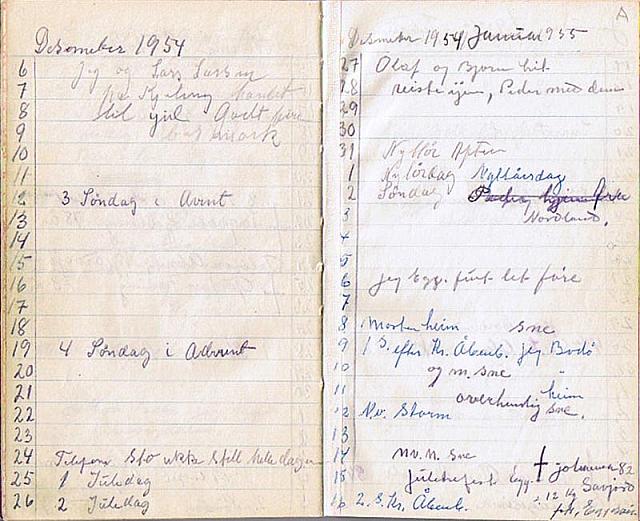 Desember 1954
6 Jeg og Lars Larsen
7
8 til jul Godt føre
9 bar mark
10
11
12 3 Søndag i Avent
13
14
15
16
17
18
19 4 Søndag i Advent
20
21
22
23
24 Telefon Sto ikke Still hele dagen
25 1 Juledag
26 2 Juledag
A
Desember 1954 / Januar 1955
27 Olaf og Bjørn hit
28 reiste igjen, Peder med dem
29
30
31 Nyttår Aften
1 Nyttårsdag
2 Søndag Peder hjem fra
3 Nordland.
4
5
6 Jeg Egg. fint let føre
7
8 Morten heim sne
9 1 S. efter Kr. Åbenb. jeg Bodø
10 og m. sne "
11 overhendig heim
12 Nv. Storm sne.
13
14 NV. N. Sne
15 Juletrefest Egg. † Johanna 82
16 2. S. Kr. Åbenb. 12 Kg Savjord